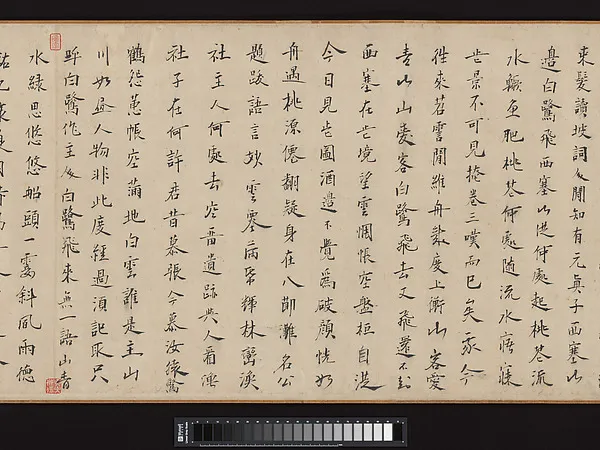 束髮讀坡詞聞知有元真子西塞山
邊白鷺飛西塞山從何處起桃花流
水鱖魚肥桃花何處隨流水寤寐
此景不可見掩卷三嘆而已矣家今
往來苕霅間維舟數度上衡山客愛
青山山愛客白鷺飛去又飛還不到
西塞在此境望雲惆悵空盤桓自從
今日見此圖酒邊不覺為破顏恍如
舟過桃源僊翻疑身在八節灘名公
題跋語言妙雲輝林巒漁
社主人何處去空留遺跡與人看漁
社子在何許君昔慕張今慕汝猿驚
鶴怨蕙帳空滿地白雲誰是主山
川如昼人物非此度經過須記取只
呼白鷺作主人白鷺飛來無一語山青
水綠思悠悠船頭一霎斜風雨德